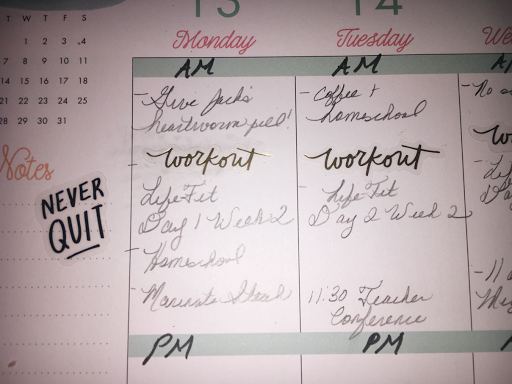 13 14
Monday Tuesday
T W T F S
1 2 3 4
7 8 9 10 11
14 15 16 17 18
21 22 23 24 25
28 29 30 31
Notes
NEVER
QUIT
AM
- Give Jack's
heartworm pill!
workout
LifeFit
Day 1 Week 2
- Homeschool
- Marinate Steak
PM
AM
- Coffee +
homeschool
workout
- LifeFit
Day 2 Week 2
11:30 Teacher
Conference
PM
- No
- 11